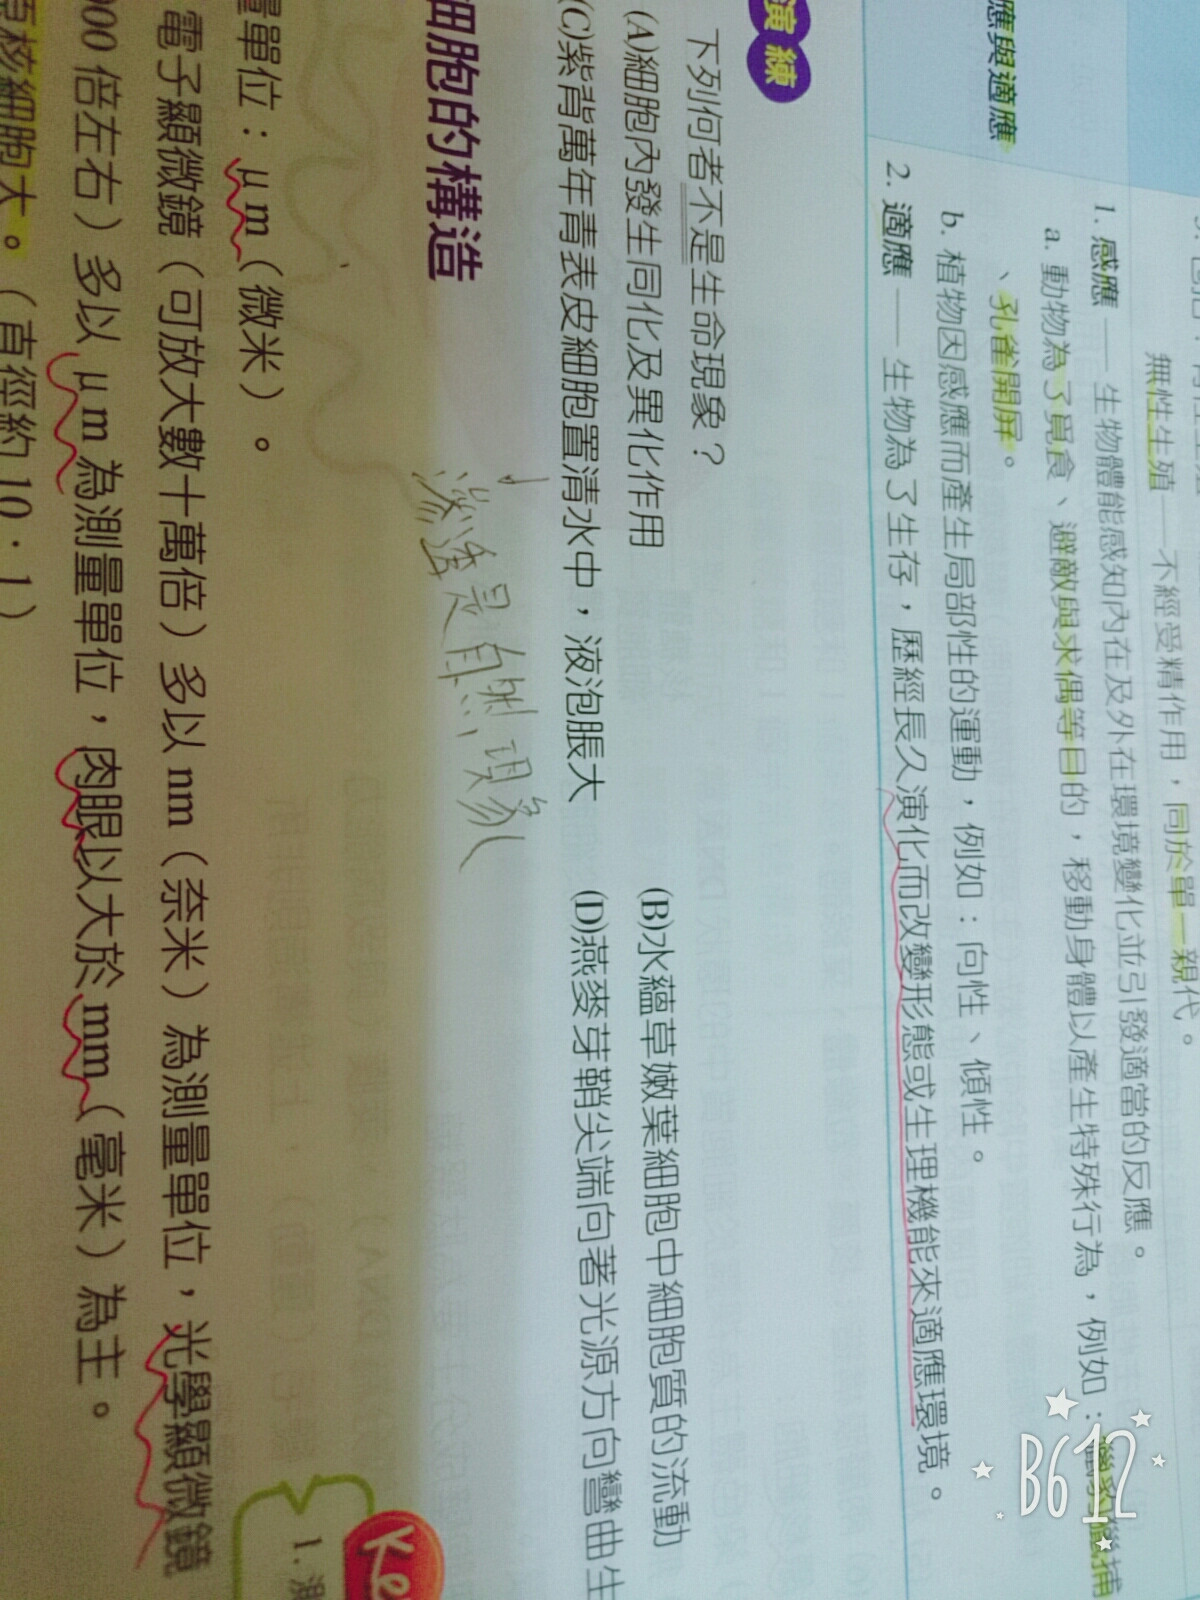 無性生殖——不經受精作用，同於單一親代。
應與適應
1. 感應——生物體能感知內在及外在環境變化並引發適當的反應。
a. 動物為了覓食、避敵與求偶等目的，移動身體以產生特殊行為，例如：獵豹獵捕
、孔雀開屏。
b. 植物因感應而產生局部性的運動，例如：向性、傾性。
2. 適應——生物為了生存，歷經長久演化而改變形態或生理機能來適應環境。
演練
下列何者不是生命現象？
(A)細胞內發生同化及異化作用
(B)水蘊草嫩葉細胞中細胞質的流動
(C)紫背萬年青表皮細胞置清水中，液泡脹大
(D)燕麥芽鞘尖端向著光源方向彎曲生
滲透是自然現象
細胞的構造
量單位：μm（微米）。
電子顯微鏡（可放大數十萬倍）多以 nm（奈米）為測量單位，光學顯微鏡
000 倍左右）多以 μm 為測量單位，肉眼以大於 mm（毫米）為主。
原核細胞大。（直徑約 10：1）
Key
1. 測
B612